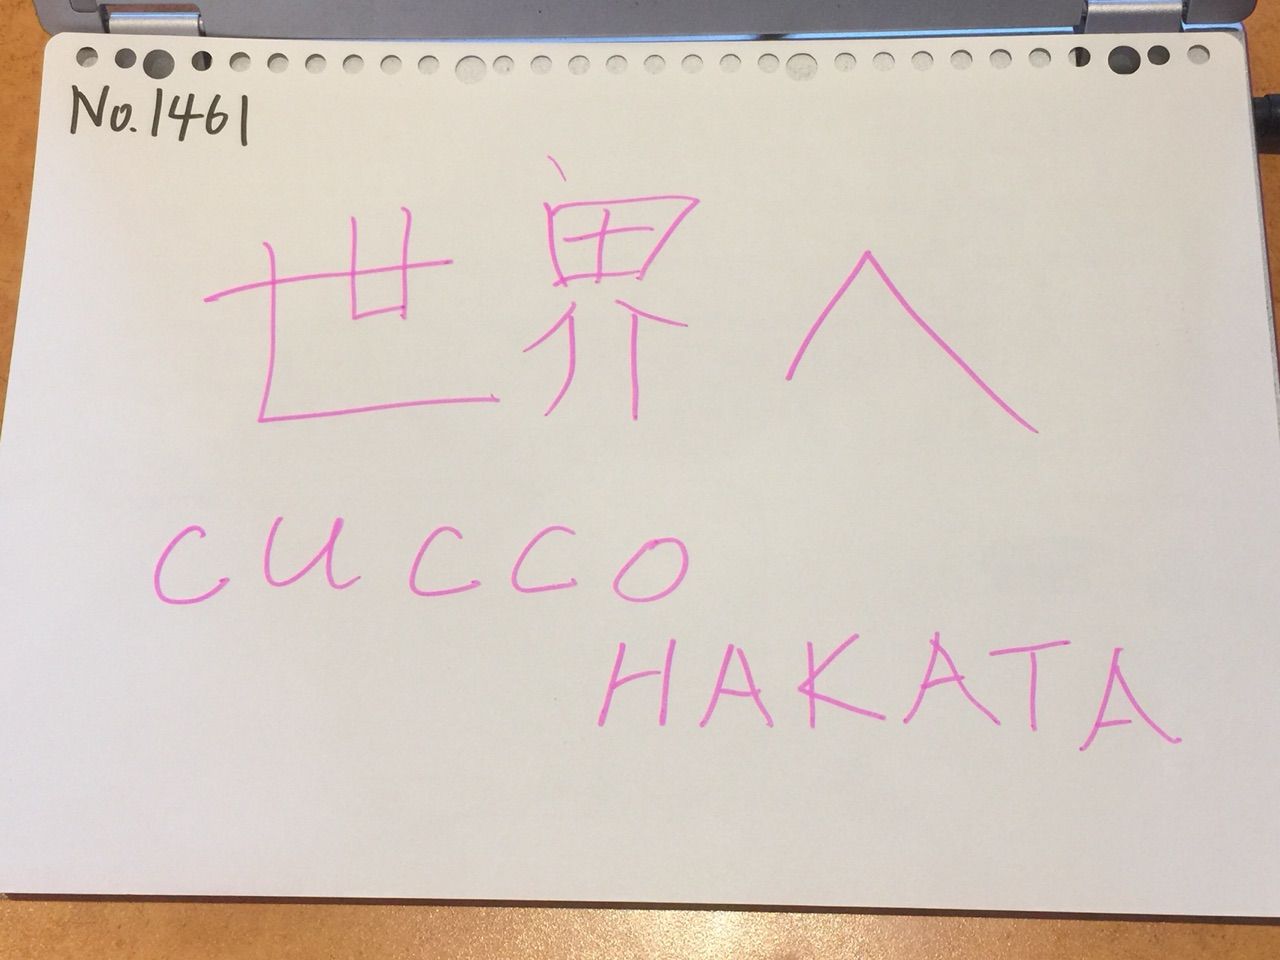 No.1461
世界へ
CUCCO
HAKATA